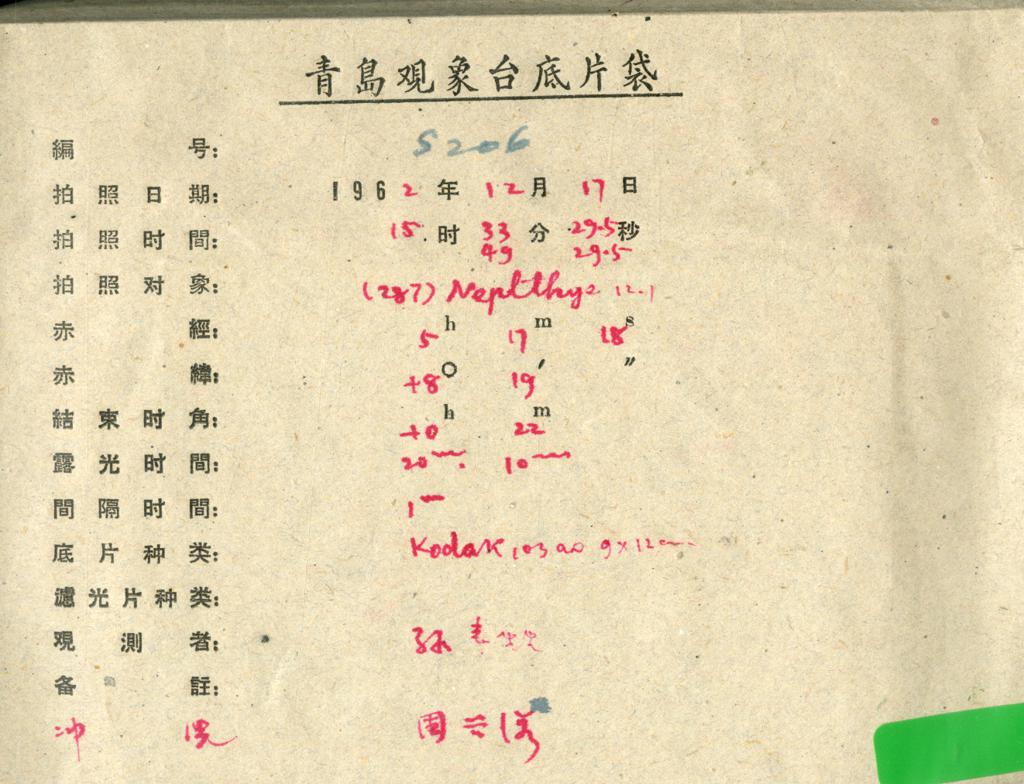 青島观象台底片袋
編号: 5206
拍照日期: 1962年12月17日
拍照时間: 15时33分29.5秒
49 29.5
拍照对象: (287) Nephthys 12.1
赤經: 5h 17m 18s
赤緯: +8° 19′ ″
結束时角: +0h 22m
露光时間: 20m. 10m
間隔时間: 1m
底片种类: Kodak 103a0 9×12cm
濾光片种类:
观測者: 孙
备註:
冲 周